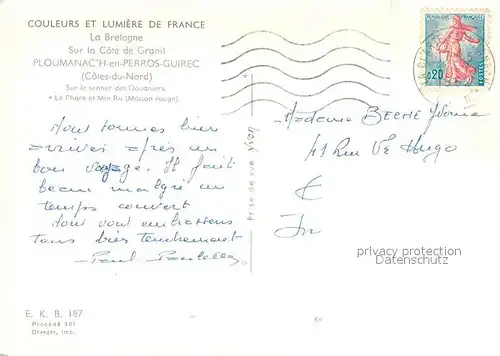 COULEURS ET LUMIÈRE DE FRANCE
La Bretagne
Sur la Côte de Granit
PLOUMANAC'H-en-PERROS-GUIREC
(Côtes-du-Nord)
Sur le sentier des Douaniers.
Le Phare et Min Ru (Maison rouge)
Nous sommes bien
arrivés après un
bon voyage. Il fait
beau malgré un
temps couvert
Nous vous embrassons
tous bien tendrement
Paul
E. K. B. 187
Procédé 301
Draeger, imp.
Prise de vue Yvon
0,20
POSTES
Madame BECHE Yvonne
41 Rue Vr Hugo
E
privacy protection
watermark